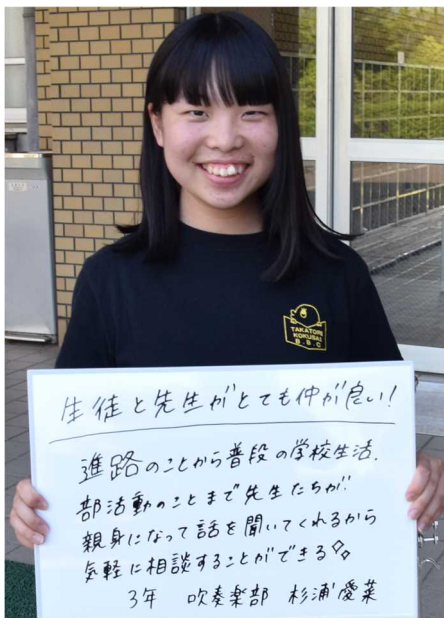 TAKATORI
KOKUSAI
B.B.C
生徒と先生がとても仲が良い!
進路のことから普段の学校生活、
部活動のことまで先生たちが
親身になって話を聞いてくれるから
気軽に相談することができる
3年 吹奏楽部 杉浦愛菜